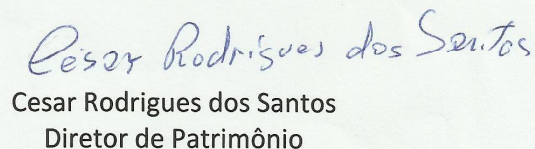 César Rodrigues dos Santos
Cesar Rodrigues dos Santos
Diretor de Patrimônio